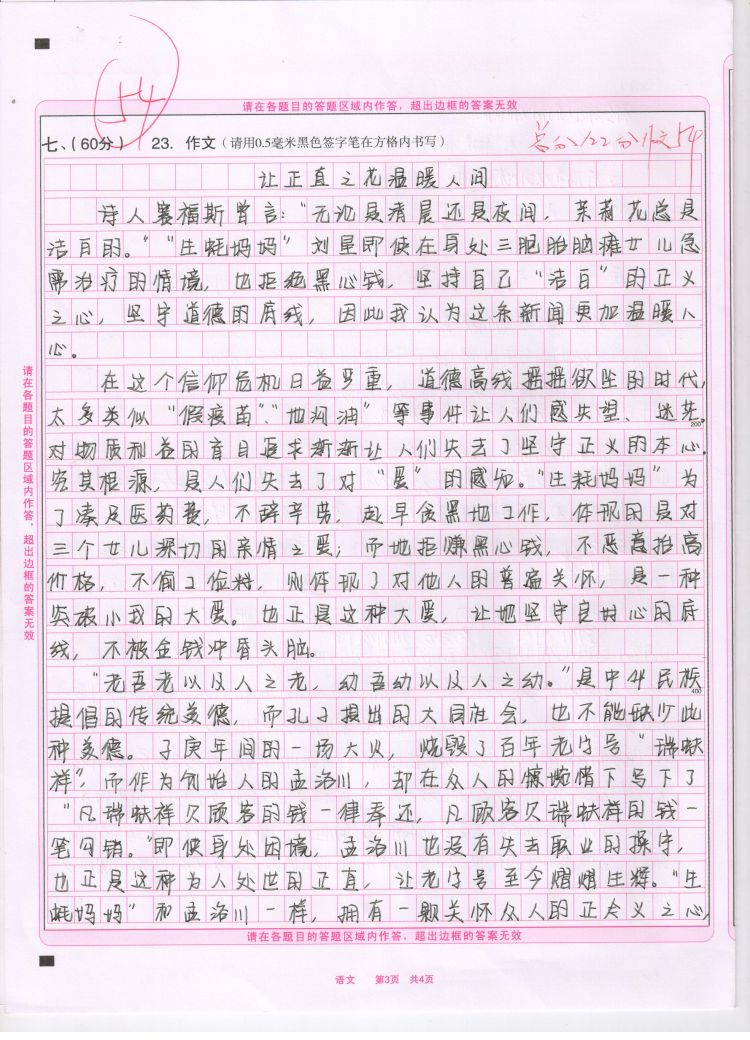 54
请在各题目的答题区域内作答，超出边框的答案无效
七、（60分） 23. 作文（请用0.5毫米黑色签字笔在方格内书写）
总分122分作文54
让正直之花温暖人间
诗人塞福斯曾言：“无论是清晨还是夜间，茉莉花总是
洁白的。”“生蚝妈妈”刘星即使在身处三胞胎脑瘫女儿急
需治疗的情境，也拒绝黑心钱，坚持自己“洁白”的正义
之心，坚守道德的底线，因此我认为这条新闻更加温暖人
心。
在这个信仰危机日益严重，道德高线摇摇欲坠的时代，
太多类似“假疫苗”、“地沟油”等事件让人们感失望、迷茫。
200
对物质利益的盲目追求渐渐让人们失去了坚守正义的本心。
究其根源，是人们失去了对“爱”的感知。“生蚝妈妈”为
了凑足医药费，不辞辛劳，起早贪黑地工作，体现的是对
三个女儿深切的亲情之爱；而她拒赚黑心钱，不恶意抬高
价格，不偷工俭料，则体现了对他人的普遍关怀，是一种
突破小我的大爱。也正是这种大爱，让她坚守良好心的底
线，不被金钱冲昏头脑。
“老吾老以及人之老，幼吾幼以及人之幼。”是中华民族
400
提倡的传统美德，而孔子提出的大同社会，也不能缺少此
种美德。子庚年间的一场大火，烧毁了百年老字号“瑞蚨
祥”，而作为创始人的孟洛川，却在众人的惊惋惜下写下了
“凡瑞蚨祥欠顾客的钱一律奉还，凡顾客欠瑞蚨祥的钱一
笔勾销。”即使身处困境，孟洛川也没有失去职业的操守，
也正是这种为人处世的正直，让老字号至今熠熠生辉。“生
蚝妈妈”和孟洛川一样，拥有一颗关怀众人的正义之心，
请在各题目的答题区域内作答，超出边框的答案无效
请在各题目的答题区域内作答，超出边框的答案无效
语文 第3页 共4页